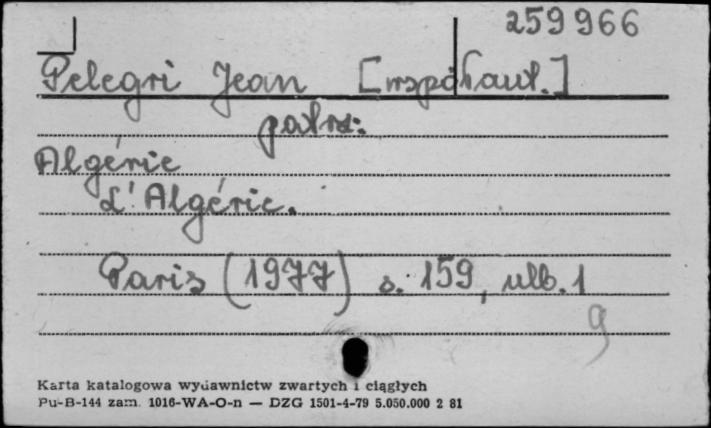 259966
Pelegri Jean [współaut.]
patrz:
Algérie
L'Algérie.
Paris (1977) s. 159, ulb. 1
9
Karta katalogowa wydawnictw zwartych i ciągłych
Pu-B-144 zam. 1016-WA-O-n — DZG 1501-4-79 5.050.000 2 81